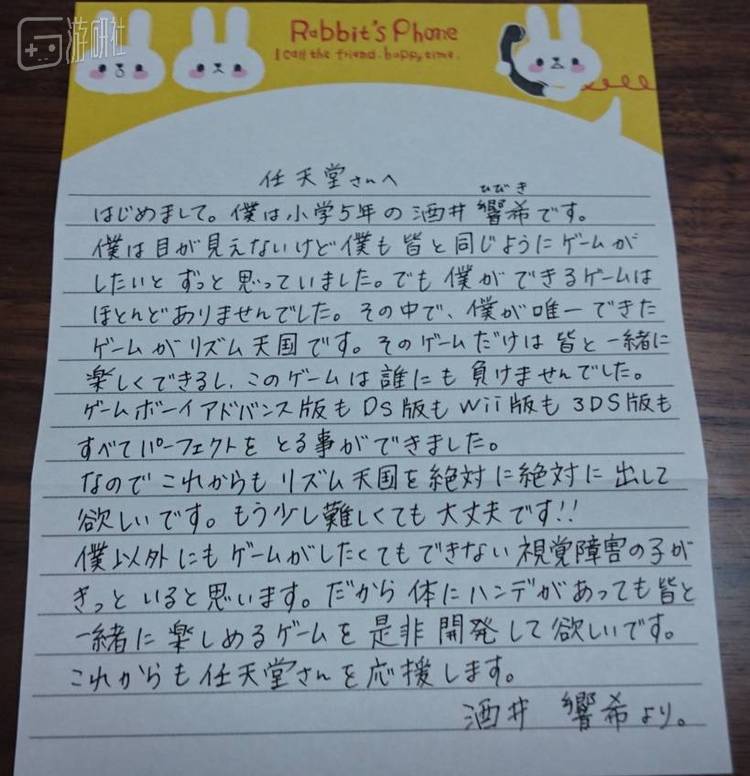 游研社
Rabbit's Phone
I call the friend. happy time.
任天堂さんへ
ひびき
はじめまして。僕は小学5年の酒井響希です。
僕は目が見えないけど僕も皆と同じようにゲームが
したいとずっと思っていました。でも僕ができるゲームは
ほとんどありませんでした。その中で、僕が唯一できた
ゲームがリズム天国です。そのゲームだけは皆と一緒に
楽しくできるし、このゲームは誰にも負けませんでした。
ゲームボーイアドバンス版もDS版もWii版も3DS版も
すべてパーフェクトをとる事ができました。
なのでこれからもリズム天国を絶対に絶対に出して
欲しいです。もう少し難しくても大丈夫です!!
僕以外にもゲームがしたくてもできない視覚障害の子が
きっといると思います。だから体にハンデがあっても皆と
一緒に楽しめるゲームを是非開発して欲しいです。
これからも任天堂さんを応援します。
酒井 響希より。